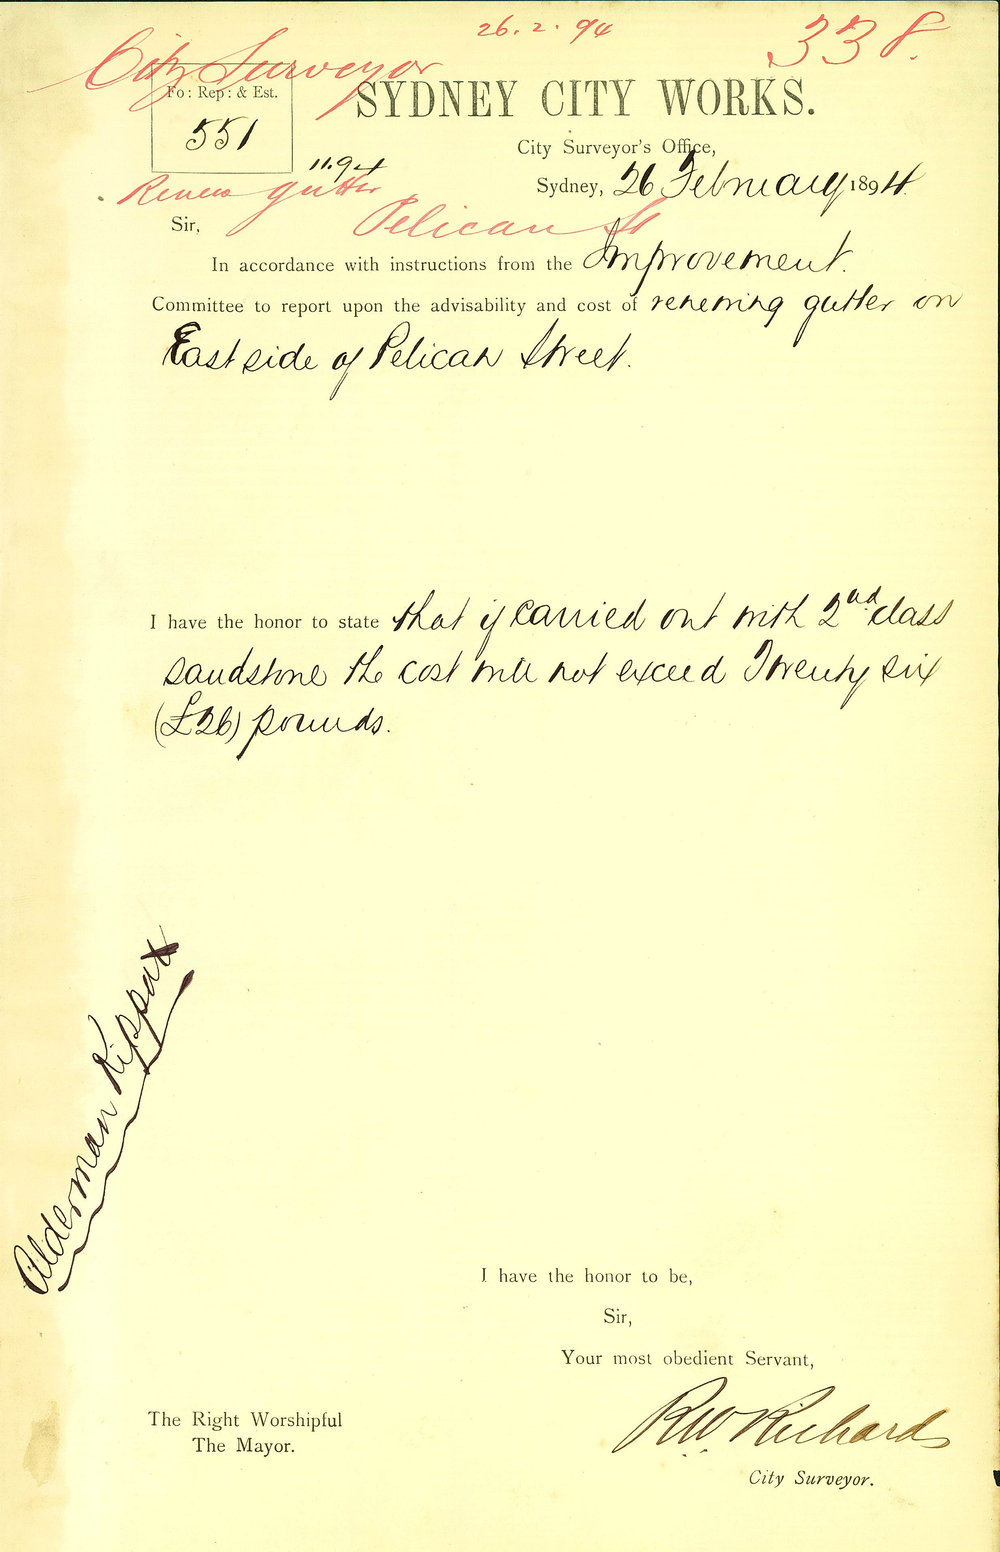 26.2.94
338.
City Surveyor
Fo: Rep: & Est.
551
11.94
SYDNEY CITY WORKS.
City Surveyor's Office,
Sydney, 26 February 1894.
Renew gutter
Pelican St
Sir,
In accordance with instructions from the Improvement.
Committee to report upon the advisability and cost of renewing gutter on
East side of Pelican Street.
I have the honor to state that if carried out with 2nd class
sandstone the cost will not exceed Twenty six
(£26) pounds.
Alderman Kippax
I have the honor to be,
Sir,
Your most obedient Servant,
RW. Richards
City Surveyor.
The Right Worshipful
The Mayor.